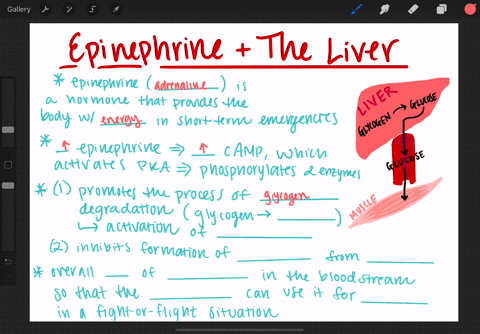 Gallery
Epinephrine + The Liver
* epinephrine (adrenaline) is
a hormone that provides the
body w/ energy in short term emergencies
* ↑ epinephrine ⇒ ↑ cAMP, which
activates PKA ⇒ phosphorylates 2 enzymes
* (1) promotes the process of glycogen
degradation (glycogen → ______)
↳ activation of ______
(2) inhibits formation of ______ from ______
* overall ___ of ______ in the bloodstream
so that the ______ can use it for ______
in a fight-or-flight situation
LIVER
GLYCOGEN → GLUCOSE
GLUCOSE
MUSCLE